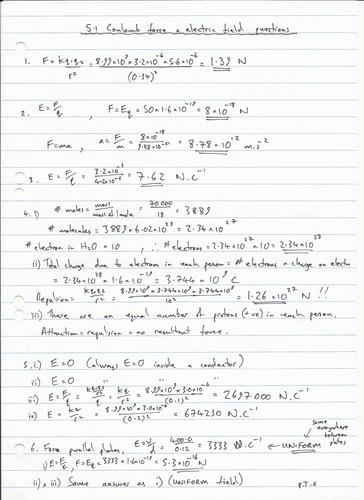 5.1 Coulomb force & electric field questions
1. F = kq₁q₂/r² = 8.99×10⁹ × 3.2×10⁻⁶ × 5.6×10⁻⁶/(0.34)² = 1.39 N
2. E = F/q , F = Eq = 50 × 1.6×10⁻¹⁹ = 8×10⁻¹⁸ N
F = ma , a = F/m = 8×10⁻¹⁸/9.11×10⁻³¹ = 8.78×10¹² m.s⁻²
3. E = F/q = 3.2×10⁻³/4.2×10⁻⁶ = 7.62 N.C⁻¹
4. i) # moles = mass/mass of 1 mole = 70000/18 = 3889
# molecules = 3889 × 6.02×10²³ = 2.34×10²⁷
# electron in H₂O = 10 , ∴ # electrons = 2.34×10²⁷ × 10 = 2.34×10²⁸
ii) Total charge due to electron in each person = # electrons × charge on electron
= 2.34×10²⁸ × 1.6×10⁻¹⁹ = 3.744×10⁹ C
Repulsion = kq₁q₂/r² = 8.99×10⁹ × 3.744×10⁹ × 3.744×10⁹/10² = 1.26×10²⁷ N !!
iii) There are an equal number of protons (+ve) in each person.
Attraction = repulsion = no resultant force.
5. i) E = 0 (always E = 0 inside a conductor)
ii) E = 0
iii) E = F/q = kq₁q₂/r²/q = kq/r² = 8.99×10⁹ × 3.0×10⁻⁶/(0.1)² = 2697000 N.C⁻¹
iv) E = kq/r² = 8.99×10⁹ × 3.0×10⁻⁶/(0.2)² = 674250 N.C⁻¹
6. For parallel plates, E = V/d = 400.0/0.12 = 3333 N.C⁻¹ ← UNIFORM
same everywhere between plates
i) E = F/q , F = Eq = 3333 × 1.6×10⁻¹⁹ = 5.3×10⁻¹⁶ N
ii) & iii) Same answer as i) (UNIFORM field)
P.T.O